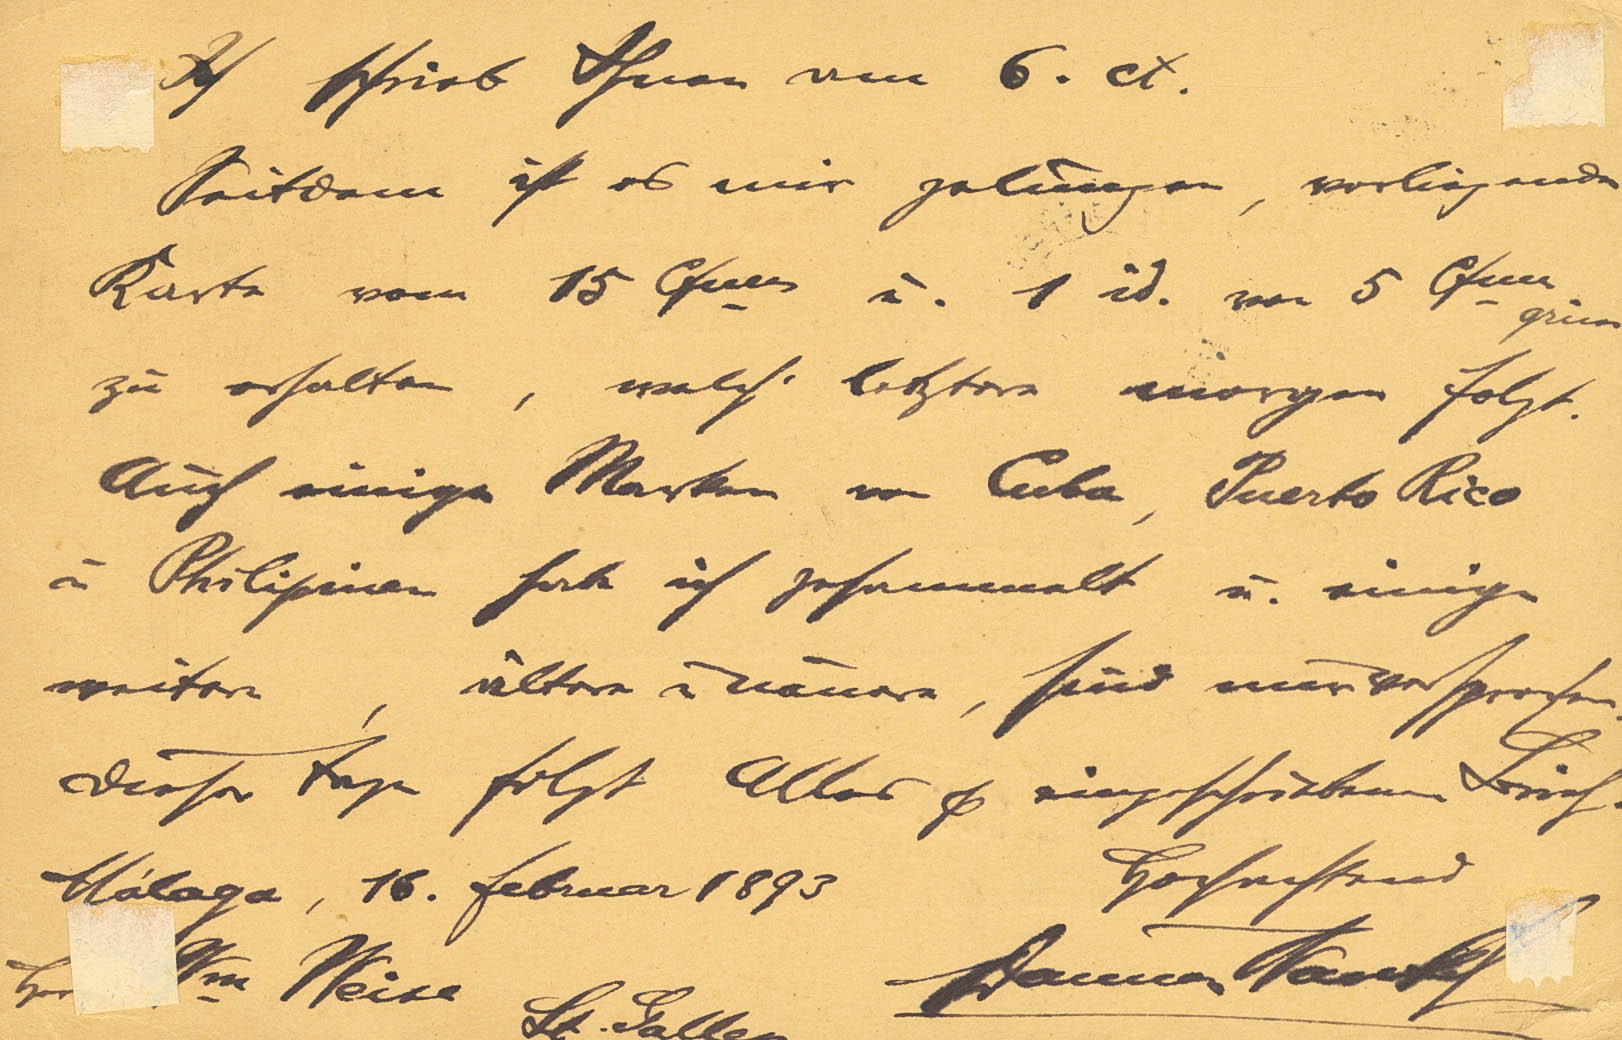 Ich schrieb Ihnen am 6. ct.
Seitdem ist es mir gelungen, vorliegende
Karte von 15 Ctmos u. 1 id. von 5 Ctmos
grün
zu erhalten, welch' letztere morgen folgt.
Auch einige Marken von Cuba, Puerto Rico
u Philipinen habe ich gesammelt u. einige
weitere, ältere u neuere, sind mir versprochen.
Dieser Tage folgt Alles p eingeschriebenem Brief.
Málaga, 16. Februar 1893
Hochachtend
Wm Weise
St. Gallen